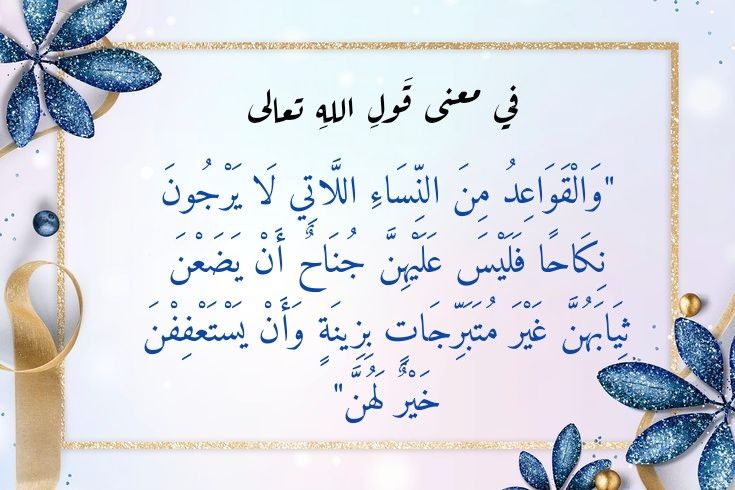 في معنى قَولِ اللهِ تعالى
"وَالْقَوَاعِدُ مِنَ النِّسَاءِ اللَّاتِي لَا يَرْجُونَ
نِكَاحًا فَلَيْسَ عَلَيْهِنَّ جُنَاحٌ أَنْ يَضَعْنَ
ثِيَابَهُنَّ غَيْرَ مُتَبَرِّجَاتٍ بِزِينَةٍ وَأَنْ يَسْتَعْفِفْنَ
خَيْرٌ لَهُنَّ"